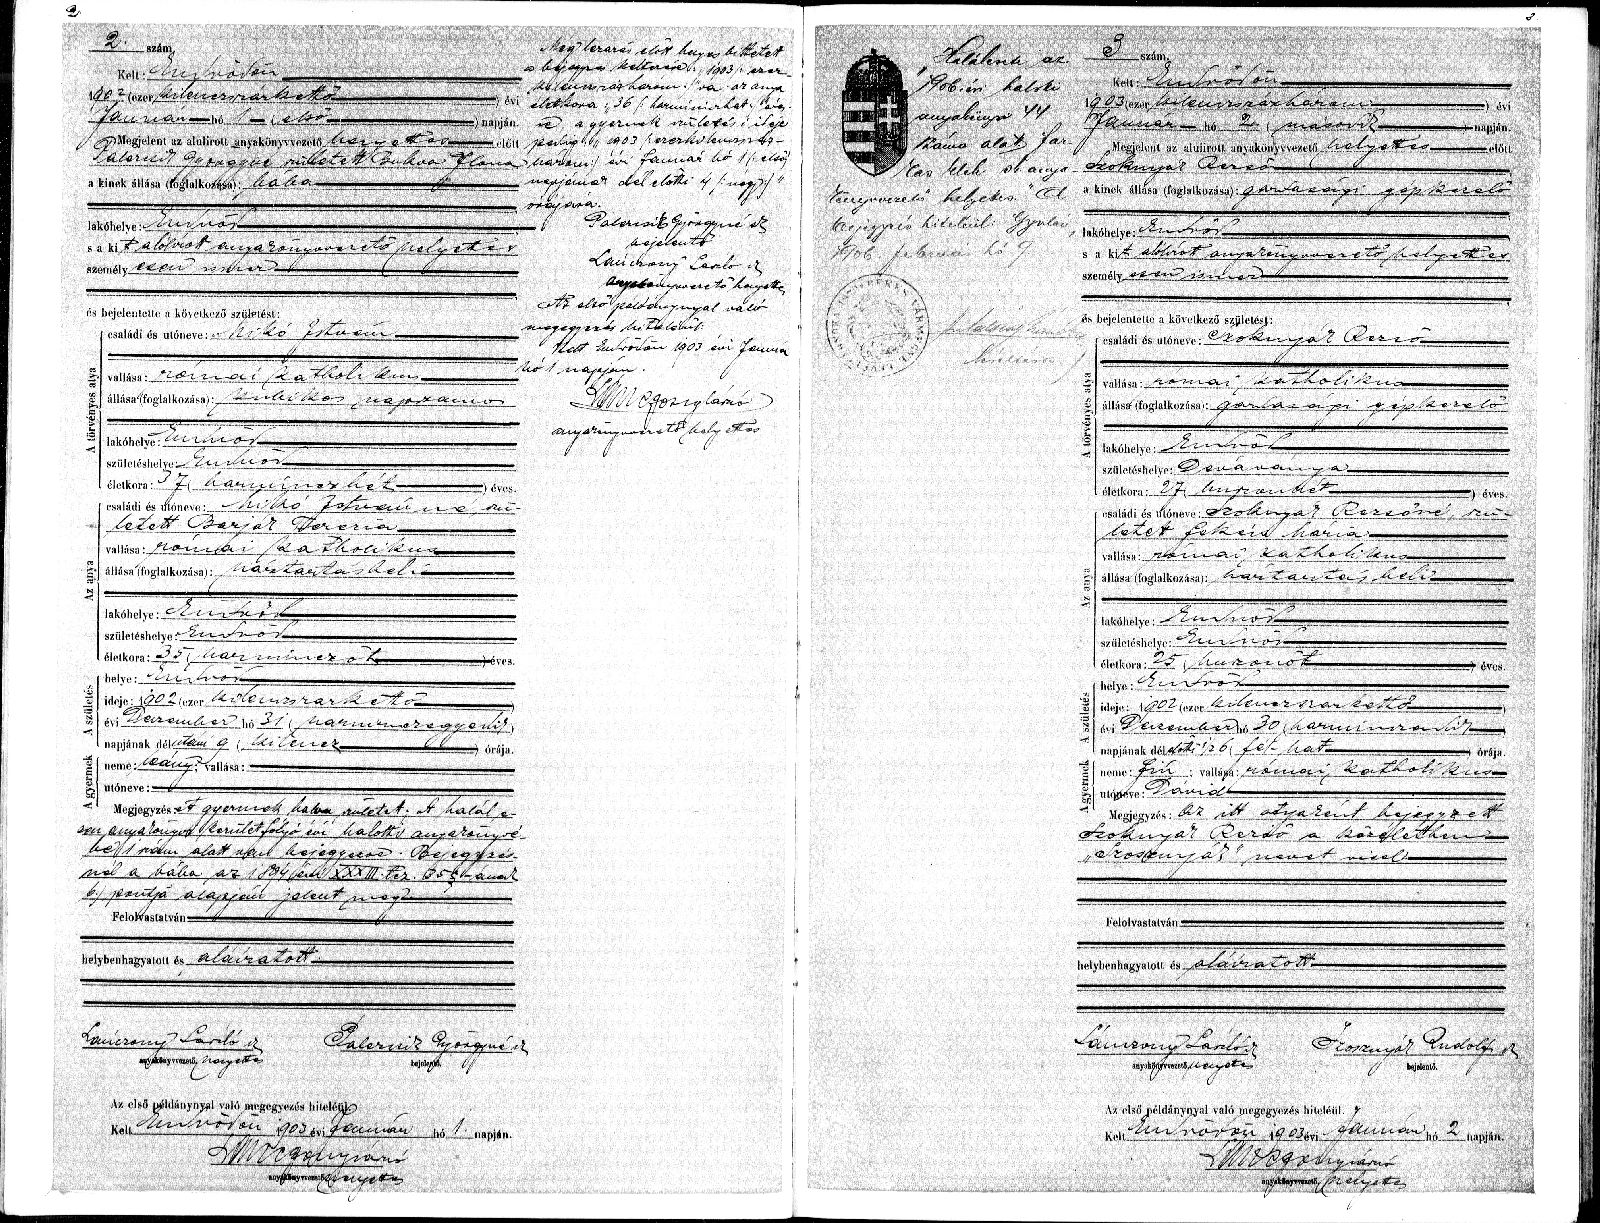 2
2. szám.
Kelt: Endrődön
1902 (ezer kilenczszázkettő) évi
Január hó 1 (első) napján.
Megjelent az alulirott anyakönyvvezető helyettes előtt
Györgyné született Ilona
a kinek állása (foglalkozása): bába
lakóhelye: Endrőd
s a kit alólirott anyakönyvvezető helyettes
személyesen ismer
és bejelentette a következő születést:
A törvényes atya
családi és utóneve: Mikó István
vallása: római katholikus
állása (foglalkozása): kubikos napszámos
lakóhelye: Endrőd
születéshelye: Endrőd
életkora: 37 (harminczhét) éves.
Az anya
családi és utóneve: Mikó Istvánné szü-
letett Terézia
vallása: római katholikus
állása (foglalkozása): háztartásbeli
lakóhelye: Endrőd
születéshelye: Endrőd
életkora: 35 (harminczöt) éves.
A születés
helye: Endrőd
ideje: 1902 (ezer kilenczszázkettő)
évi Deczember hó 31 (harminczegyedik)
napjának délutáni 9 (kilencz) órája.
A gyermek
neme: leány; vallása:
utóneve:
Megjegyzés: A gyermek halva született. A halál e-
sen anyakönyvi kerület folyó évi halotti anyakönyvé-
be 1 szám alatt van bejegyezve. Bejegyzés-
nél a bába az 1894 évi XXXIII. tcz. 35 §
b) pontja alapján jelent meg
Felolvastatván
helybenhagyatott és aláiratott
László
anyakönyvvezető helyettes
Györgyné
bejelentő.
Az első példánynyal való megegyezés hiteléül.
Kelt Endrődön 1903 évi Január hó 1. napján.
anyakönyvvezető helyettes
Még lezárás előtt hagyás
a bejegyzés keltezése 1903 /: ezer
kilenczszázhárom :/ va az anya
életkora "36" /: harminczhat :/ évre
a gyermek születési ideje
pedig 1903 /: ezerkilenczszáz-
három :/ évi Január hó 1 /: első :/
napjának délelőtti 4 /: négy :/
órájára.
Györgyné
bejelentő
László
anyakönyvvezető helyettes
Az első példánynyal való
megegyezés hiteléül.
Kelt Endrődön 1903 évi Január
hó 1 napján.
anyakönyvvezető helyettes
3
Halálesete az
1906. évi halotti
anyakönyv 44
száma alatt
helyettes.
hiteléül. Gyula,
1906. február hó 9.
3 szám.
Kelt: Endrődön
1903 (ezer kilenczszázhárom) évi
Január hó 2 (második) napján.
Megjelent az alulirott anyakönyvvezető helyettes előtt
Szoknyár Rezső
a kinek állása (foglalkozása): gazdasági gépkezelő
lakóhelye: Endrőd
s a kit alólirott anyakönyvvezető helyettes
személyesen ismer
és bejelentette a következő születést:
A törvényes atya
családi és utóneve: Szoknyár Rezső
vallása: római katholikus
állása (foglalkozása): gazdasági gépkezelő
lakóhelye: Endrőd
születéshelye: Dévaványa
életkora: 27 (huszonhét) éves.
Az anya
családi és utóneve: Szoknyár Rezsőné, szü-
letett Mária
vallása: római katholikus
állása (foglalkozása): háztartásbeli
lakóhelye: Endrőd
születéshelye: Endrőd
életkora: 25 (huszonöt) éves.
A születés
helye: Endrőd
ideje: 1902 (ezer kilenczszázkettő)
évi Deczember hó 30 (harminczadik)
napjának délelőtti ½6 (fél hat) órája.
A gyermek
neme: fiú; vallása: római katholikus
utóneve: Dávid
Megjegyzés: Az itt atyaként bejegyzett
Szoknyár Rezső a közéletben
" nevet visel
Felolvastatván
helybenhagyatott és aláiratott
László
anyakönyvvezető helyettes
Rudolf
bejelentő.
Az első példánynyal való megegyezés hiteléül.
Kelt Endrődön 1903 évi Január hó 2 napján.
anyakönyvvezető helyettes